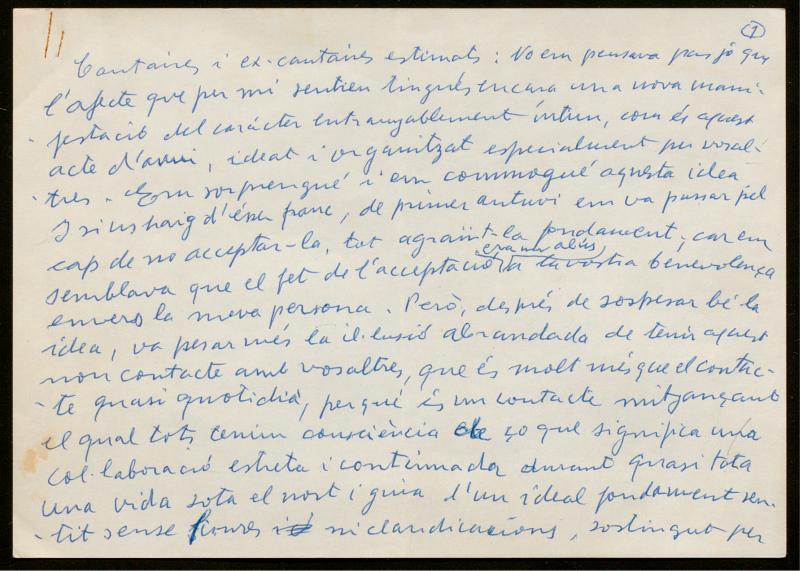 1
Cantaires i ex-cantaires estimats: No em pensava pas jo que
l'afecte que per mi sentien tingués encara una nova mani-
festació del caràcter entranyablement íntim, com és aquest
acte d'avui, ideat i organitzat especialment per vosal-
tres. Em sorprengué i em commogué aquesta idea
I si us haig d'ésser franc, de primer antuvi em va passar pel
cap de no acceptar-la, tot agraint-la fondament, car em
semblava que el fet de l'acceptació era un abús a la vostra benevolença
envers la meva persona. Però, després de sospesar bé la
idea, va pesar més la il·lusió abrandada de tenir aquest
nou contacte amb vosaltres, que és molt més que el contac-
te quasi quotidià, perquè és un contacte mitjançant
el qual tots tenim consciència de ço que significa una
col·laboració estreta i continuada durant quasi tota
una vida sota el nort i guia d'un ideal fondament sen-
tit sense ni claudicacions, sostingut per